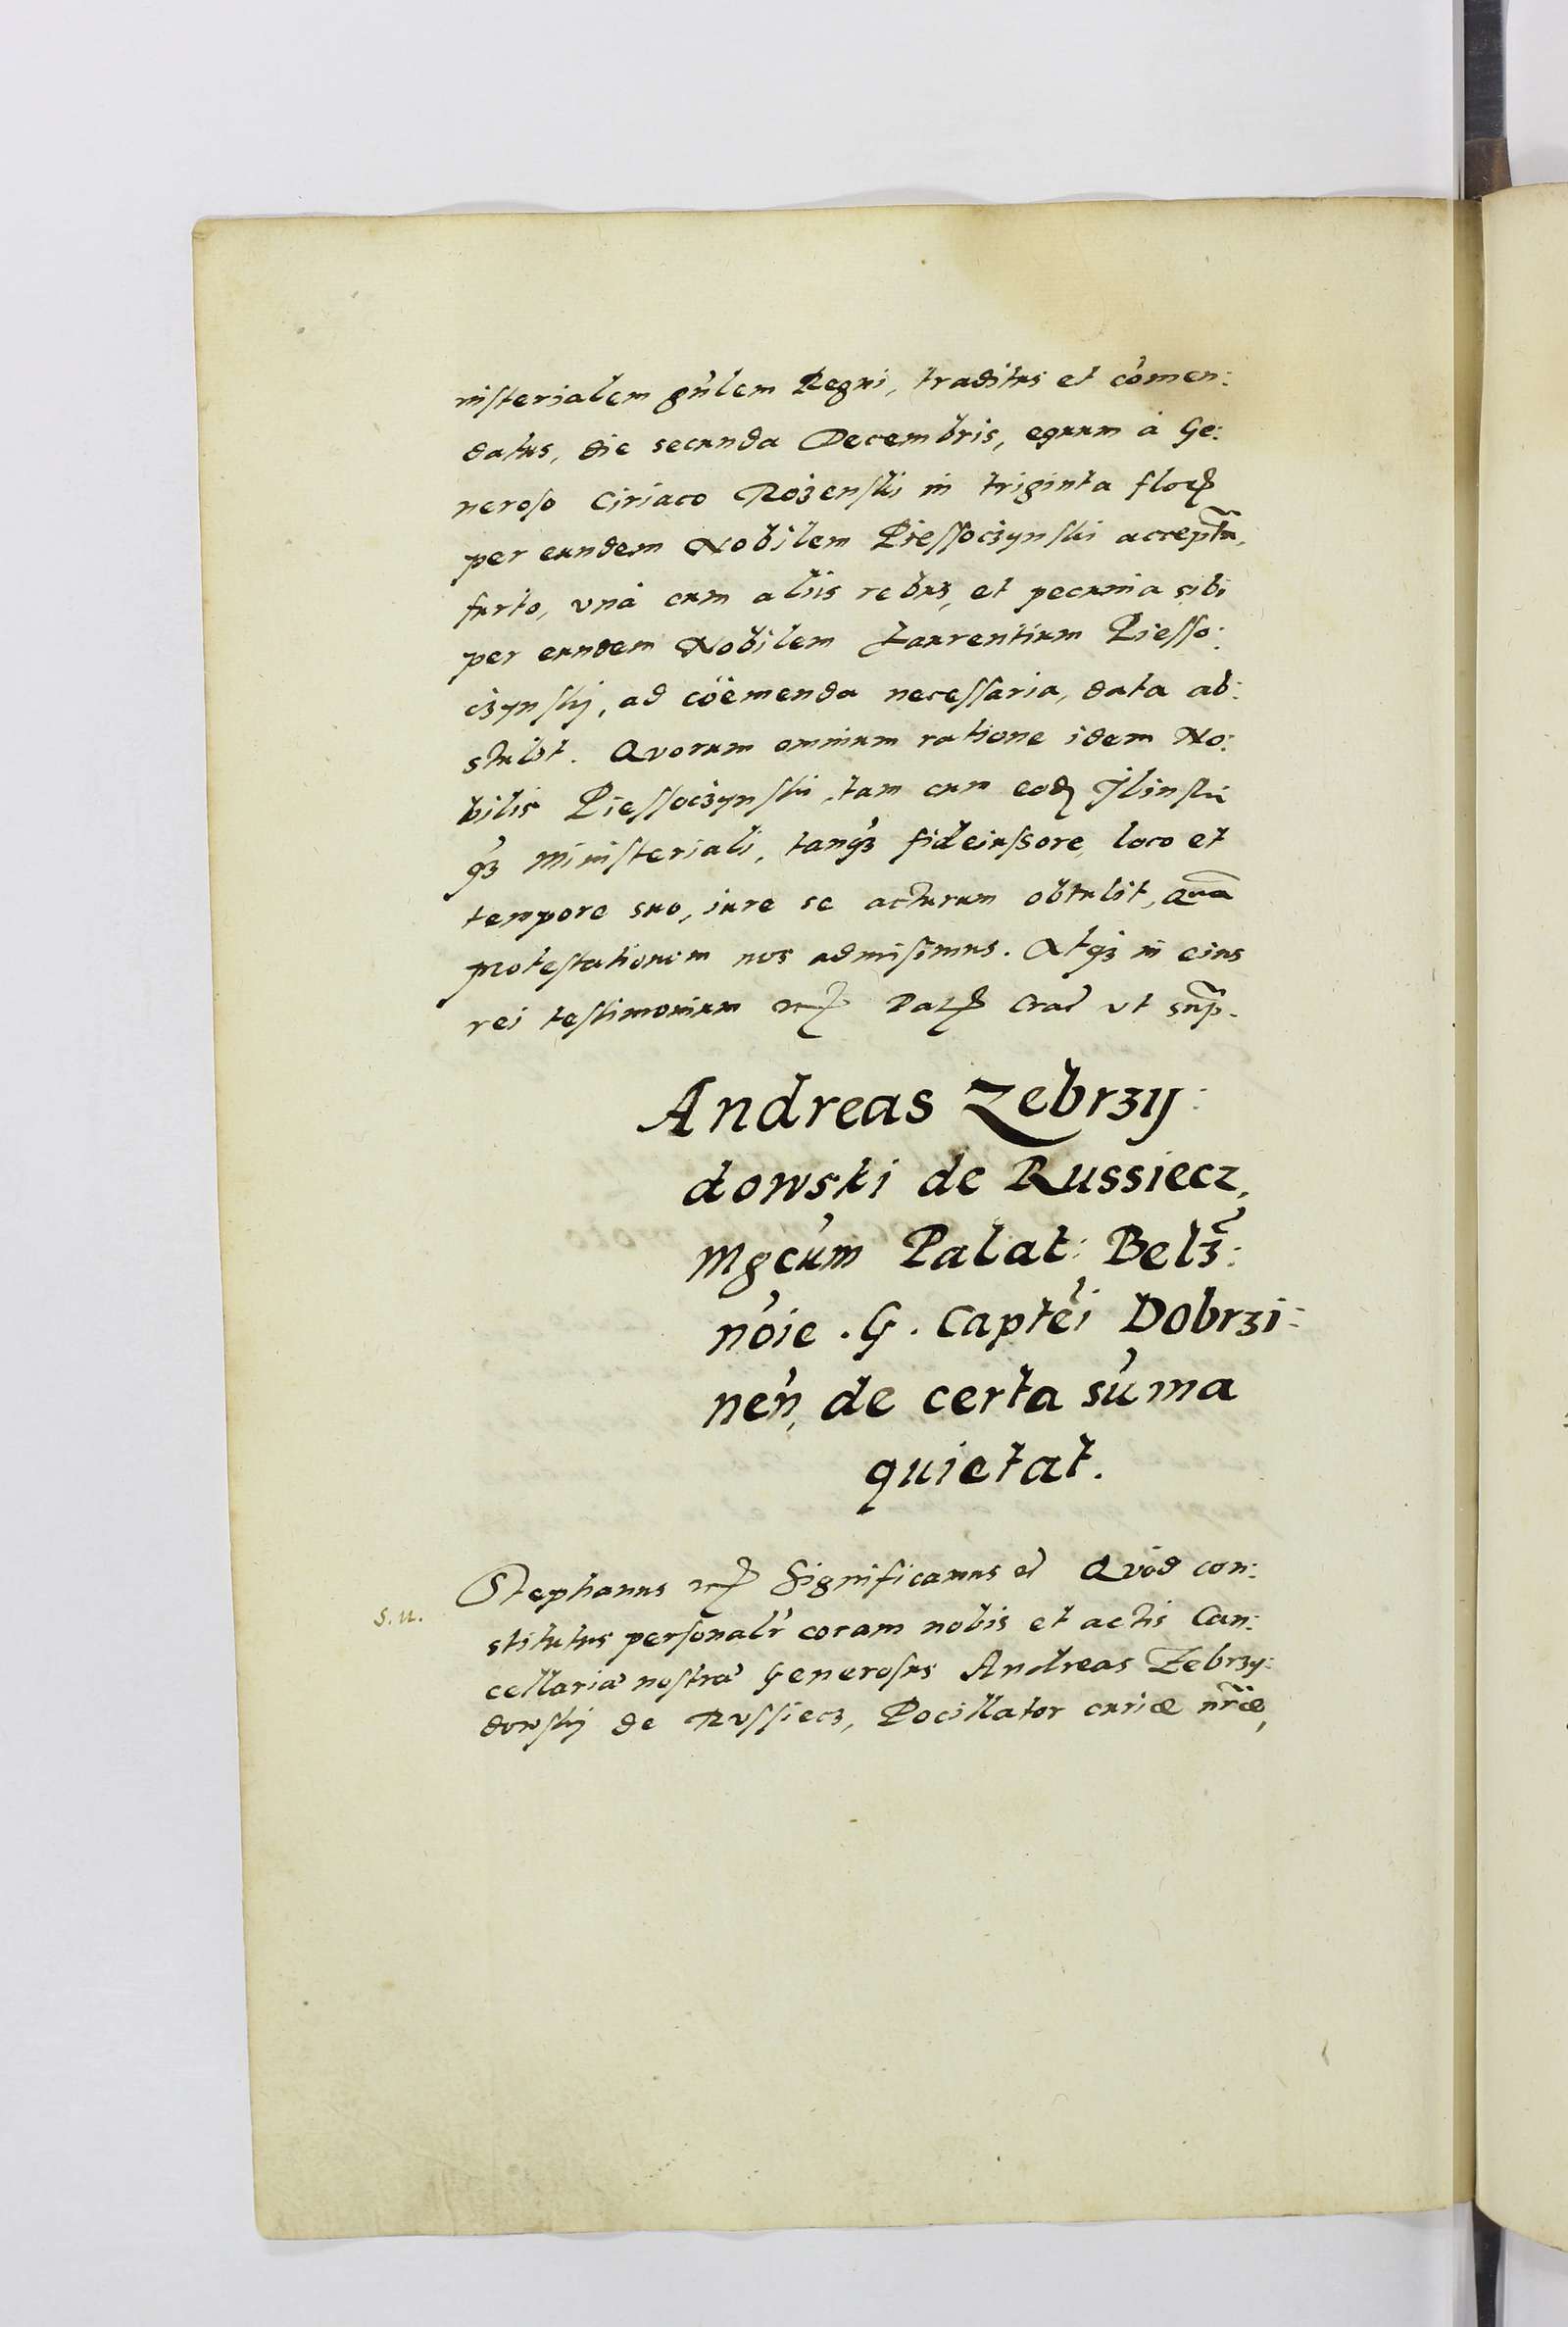 nisterialem gńlem Regni, traditus et cómen:
datus, die secunda Decembris, equum à Ge:
neroso Ciriaco Rozenski in triginta
per eundem Nobilem Piessoczynski accept̃u,
furto, vnà cum aliis rebus, et pecunia sibi
per eundem Nobilem Laurentium Piesso:
czynskij, ad coëmenda necessaria, data ab:
stulit. Quorum omnium ratione idem No:
bilis Piessoczynski, tam cum eod Jlinski
qȝ Ministeriali, tanqȝ fideiussore, loco et
tempore suo, iure se acturum obtulit, Quã
protestationem nos admisimus. Atqȝ in eius
rei testimonium Dat Crac̓ vt sup̃.
Andreas Zebrzy:
dowski de Russiecz,
Mgcúm Palat: Belȝ̃:
nóie . G . Captéi Dobrzi:
neń, de certa súma
quietat.
Stephanus Significamus &c̓ Quòd con:
s.u.
stitutus personalr̓ coram nobis et actis Can:
cellariæ nostræ Generosus Andreas Zebrzy:
dowskij de Russiecz, Pocillator curiæ nr̃æ,